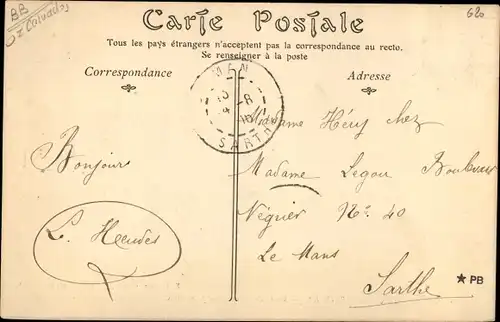 BB
Calvados
620
Carte Postale
Tous les pays étrangers n'acceptent pas la correspondance au recto.
Se renseigner à la poste
Correspondance
Adresse
MAN
4 -8
SARTHE
Madame Héry chez
Madame Legou Boulevard
Négrier N° 40
Le Mans
Sarthe
Bonjour
L. Heudes
★ PB